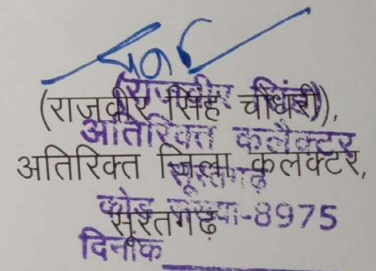 (राजवीर सिंह चौधरी),
अतिरिक्त कलैक्टर
अतिरिक्त जिला कलक्टर,
सूरतगढ़
कोड संख्या-8975
सूरतगढ़
दिनांक